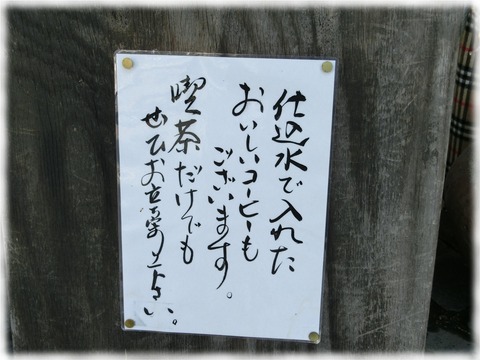 仕込水で入れた
おいしいコーヒーも
ございます。
喫茶だけでも
ぜひお立寄り下さい。